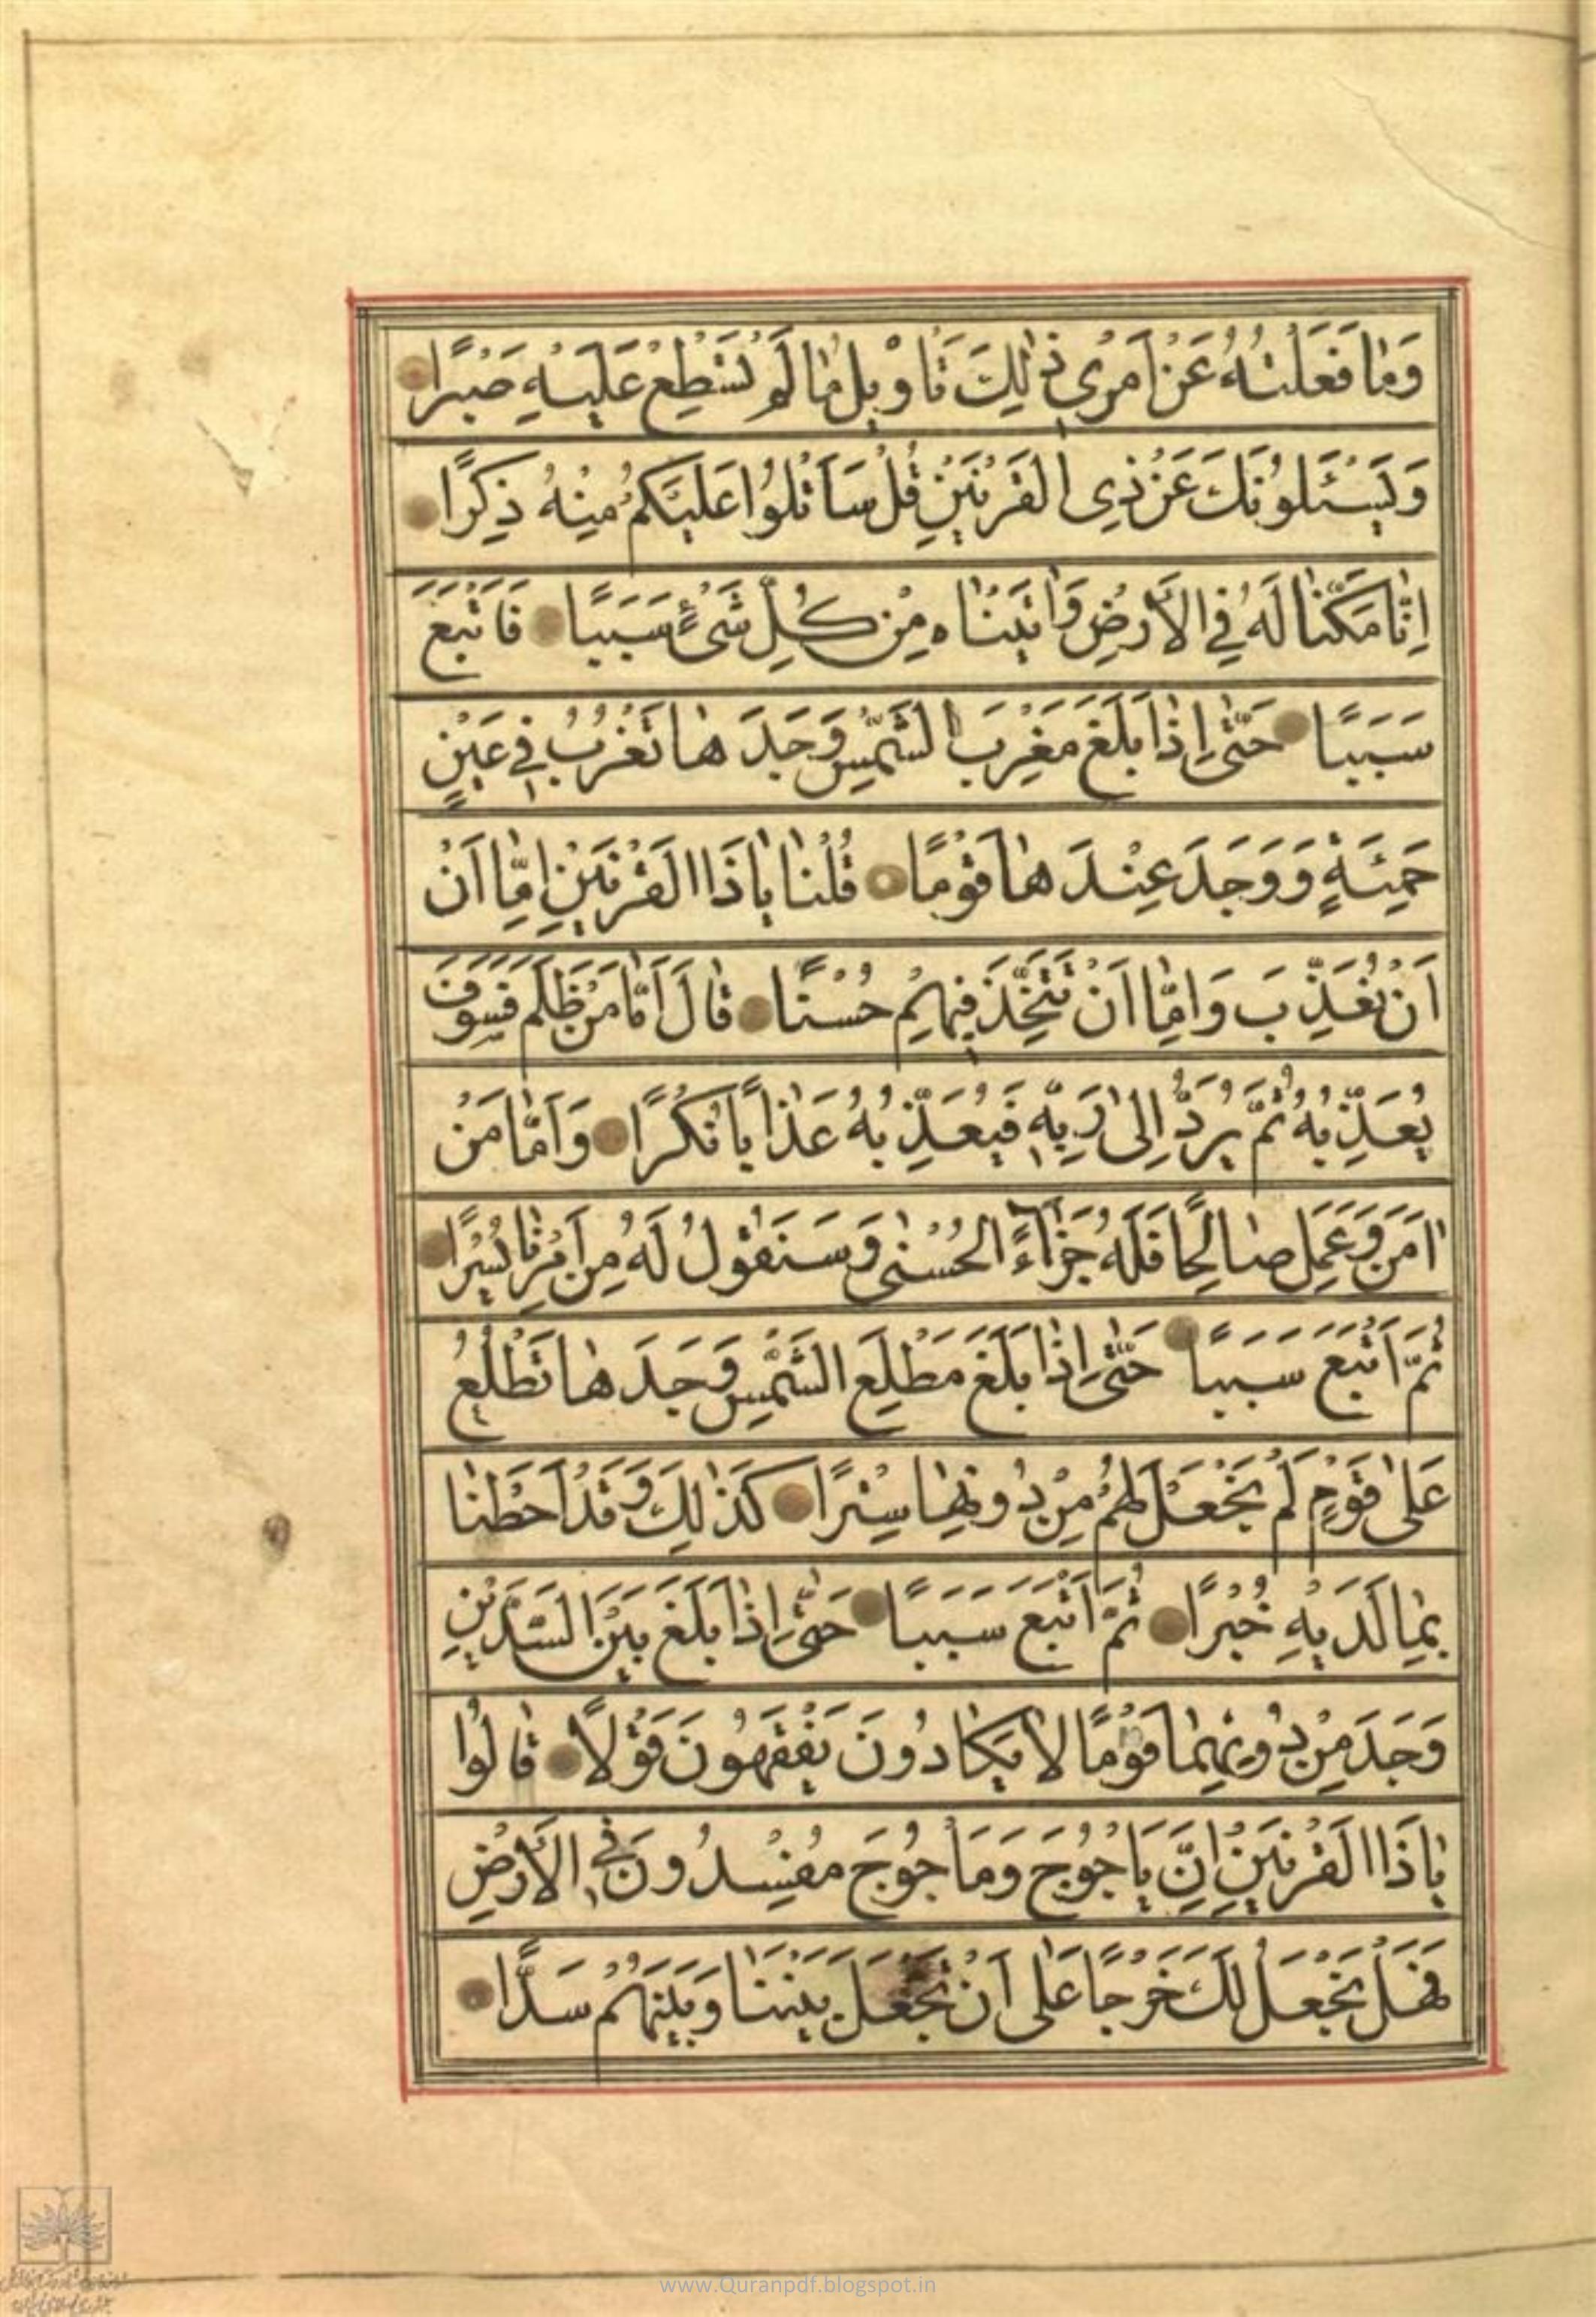 وَمٰا فَعَلْتُهُ عَنْ اَمْرِی ذٰلِكَ تَاْوِیلُ مٰا لَمْ تَسْطِعْ عَلَیْهِ صَبْرًا
وَیَسْئَلُونَكَ عَنْ ذِی الْقَرْنَیْنِ قُلْ سَاَتْلُوا عَلَیْكُمْ مِنْهُ ذِكْرًا
اِنّٰا مَكَّنّٰا لَهُ فِی الْاَرْضِ وَاٰتَیْنٰاهُ مِنْ كُلِّ شَیْءٍ سَبَبًا فَاَتْبَعَ
سَبَبًا حَتّٰی اِذٰا بَلَغَ مَغْرِبَ الشَّمْسِ وَجَدَهٰا تَغْرُبُ فِی عَیْنٍ
حَمِئَةٍ وَوَجَدَ عِنْدَهٰا قَوْمًا قُلْنٰا یٰا ذَا الْقَرْنَیْنِ اِمّٰا اَنْ
اَنْ تُعَذِّبَ وَاِمّٰا اَنْ تَتَّخِذَ فِیهِمْ حُسْنًا قٰالَ اَمّٰا مَنْ ظَلَمَ فَسَوْفَ
یُعَذِّبُهُ ثُمَّ یُرَدُّ اِلٰی رَبِّهِ فَیُعَذِّبُهُ عَذٰابًا نُكْرًا وَاَمّٰا مَنْ
اٰمَنَ وَعَمِلَ صٰالِحًا فَلَهُ جَزٰاءً الْحُسْنٰی وَسَنَقُولُ لَهُ مِنْ اَمْرِنٰا یُسْرًا
ثُمَّ اَتْبَعَ سَبَبًا حَتّٰی اِذٰا بَلَغَ مَطْلِعَ الشَّمْسِ وَجَدَهٰا تَطْلُعُ
عَلٰی قَوْمٍ لَمْ نَجْعَلْ لَهُمْ مِنْ دُونِهٰا سِتْرًا كَذٰلِكَ وَقَدْ اَحَطْنٰا
بِمٰا لَدَیْهِ خُبْرًا ثُمَّ اَتْبَعَ سَبَبًا حَتّٰی اِذٰا بَلَغَ بَیْنَ السَّدَّیْنِ
وَجَدَ مِنْ دُونِهِمٰا قَوْمًا لاٰ یَكٰادُونَ یَفْقَهُونَ قَوْلًا قٰالُوا
یٰا ذَا الْقَرْنَیْنِ اِنَّ یَاْجُوجَ وَمَاْجُوجَ مُفْسِدُونَ فِی الْاَرْضِ
فَهَلْ نَجْعَلُ لَكَ خَرْجًا عَلٰی اَنْ تَجْعَلَ بَیْنَنٰا وَبَیْنَهُمْ سَدًّا
www.Quranpdf.blogspot.in